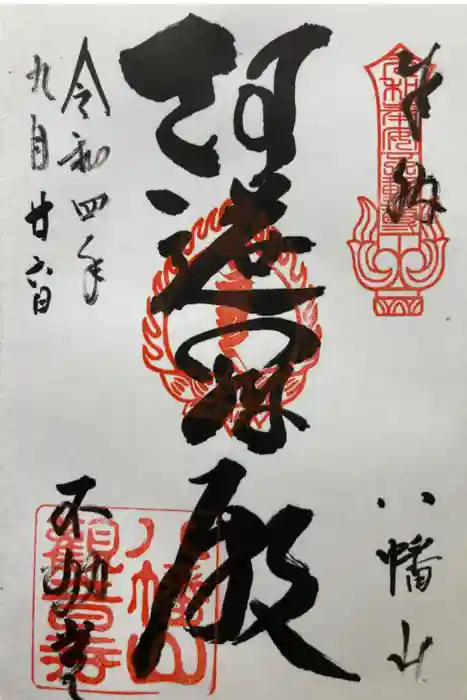 奉納
八幡山
阿遮羅殿
令和四年
九月廿六日
不動堂
八幡山
觀音寺